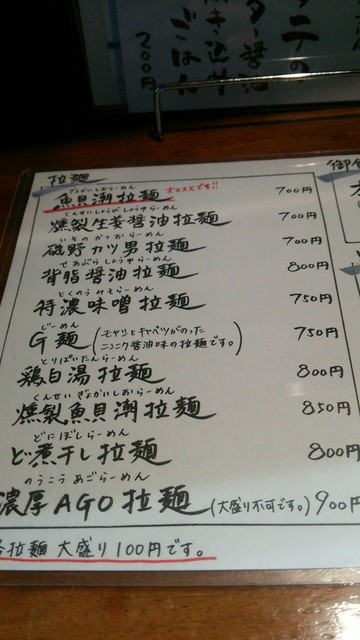 タニの
ター醤油
炊き込み
ごはん
200円
拉麺
ぎょかいしおらーめん
魚貝潮拉麺 オススメです!! 700円
くんせいしょうがしょうゆらーめん
燻製生姜醤油拉麺 700円
いその かつおらーめん
磯野カツ男拉麺 700円
せあぶらしょうゆらーめん
背脂醤油拉麺 800円
とくのうみそらーめん
特濃味噌拉麺 750円
じーめん
G麺 (モヤシとキャベツがのったニンニク醤油味の拉麺です。) 750円
とりぱいたんらーめん
鶏白湯拉麺 800円
くんせいぎょかいしおらーめん
燻製魚貝潮拉麺 850円
どにぼしらーめん
ど煮干し拉麺 800円
のうこうあごらーめん
濃厚AGO拉麺 (大盛り不可です。) 900円
各拉麺 大盛り100円です。